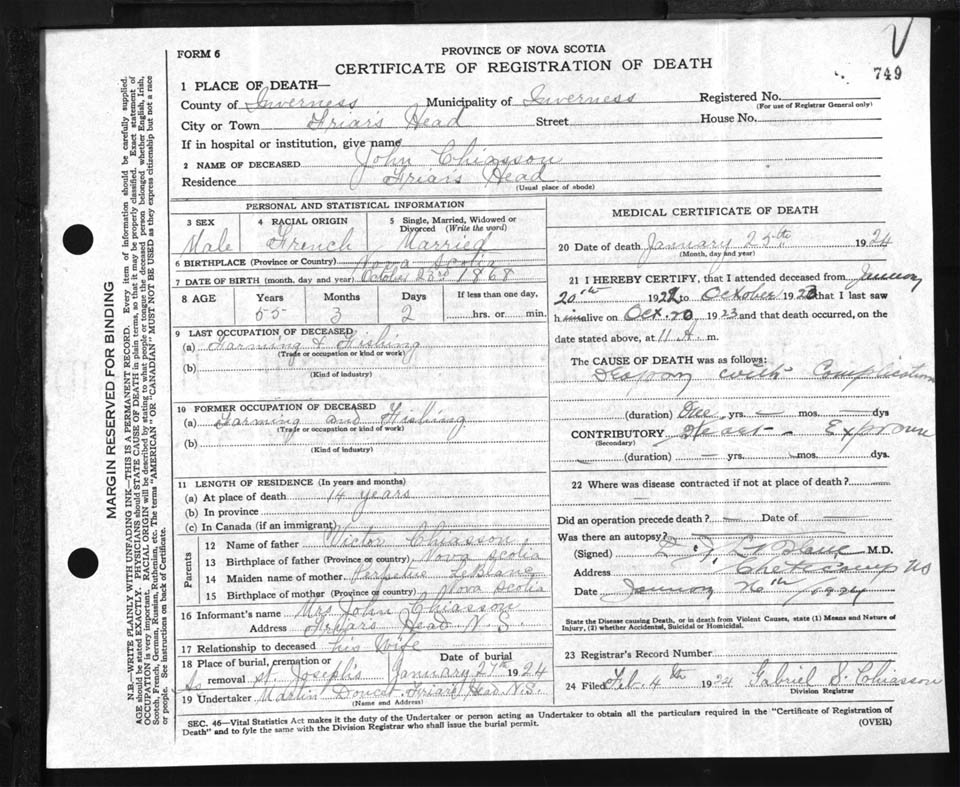 FORM 6
PROVINCE OF NOVA SCOTIA
CERTIFICATE OF REGISTRATION OF DEATH
749
1 PLACE OF DEATH—
County of Inverness Municipality of Inverness Registered No.
(For use of Registrar General only)
City or Town Friars Head Street House No.
If in hospital or institution, give name
2 NAME OF DECEASED John Chiasson
Residence Friar's Head
(Usual place of abode)
PERSONAL AND STATISTICAL INFORMATION
3 SEX Male
4 RACIAL ORIGIN French
5 Single, Married, Widowed or Divorced (Write the word) Married
6 BIRTHPLACE (Province or Country) Nova Scotia
7 DATE OF BIRTH (month, day and year) October 23rd 1868
8 AGE Years Months Days If less than one day,
55 3 2 hrs. or min.
9 LAST OCCUPATION OF DECEASED
(a) Farming & Fishing
(Trade or occupation or kind of work)
(b)
(Kind of industry)
10 FORMER OCCUPATION OF DECEASED
(a) Farming and Fishing
(Trade or occupation or kind of work)
(b)
(Kind of industry)
11 LENGTH OF RESIDENCE (In years and months)
(a) At place of death 14 years
(b) In province
(c) In Canada (if an immigrant)
Parents
12 Name of father Victor Chiasson
13 Birthplace of father (Province or country) Nova Scotia
14 Maiden name of mother LeBlanc
15 Birthplace of mother (Province or country) Nova Scotia
16 Informant's name Mrs John Chiasson
Address Friars Head N.S.
17 Relationship to deceased his Wife
18 Place of burial, cremation or removal St. Joseph's Date of burial January 27th 1924
19 Undertaker Martin Doucet Friars Head N.S.
(Name and Address)
MEDICAL CERTIFICATE OF DEATH
20 Date of death January 25th 1924
(Month, day and year)
21 I HEREBY CERTIFY, that I attended deceased from January
20th 192 to October 1923 that I last saw
h im alive on Oct. 1923 and that death occurred, on the
date stated above, at 11 A. m.
The CAUSE OF DEATH was as follows:
with Complications
(duration) One yrs. — mos. — dys
CONTRIBUTORY Exposure
(Secondary)
(duration) — yrs. — mos. dys.
22 Where was disease contracted if not at place of death?
Did an operation precede death? — Date of —
Was there an autopsy?
(Signed) LeBlanc M.D.
Address Cheticamp NS
Date January 26th 1924
State the Disease causing Death, or in death from Violent Causes, state (1) Means and Nature of
Injury, (2) whether Accidental, Suicidal or Homicidal.
23 Registrar's Record Number
24 Filed Feb. 4th 1924 Gabriel S. Chiasson
Division Registrar
SEC. 46—Vital Statistics Act makes it the duty of the Undertaker or person acting as Undertaker to obtain all the particulars required in the "Certificate of Registration of
Death" and to fyle the same with the Division Registrar who shall issue the burial permit.
(OVER)
MARGIN RESERVED FOR BINDING
N.B.—WRITE PLAINLY WITH UNFADING INK.—THIS IS A PERMANENT RECORD. Every item of information should be carefully supplied.
AGE should be stated EXACTLY. PHYSICIANS should STATE CAUSE OF DEATH in plain terms, so that it may be properly classified. Exact statement of
OCCUPATION is very important. RACIAL ORIGIN will be described by stating to what people or tongue the deceased person belonged whether English, Irish,
Scotch, French, German, Russian, Ruthenian, etc. The terms "AMERICAN" OR "CANADIAN" MUST NOT BE USED as they express citizenship but not a race
or people. See instructions on back of Certificate.